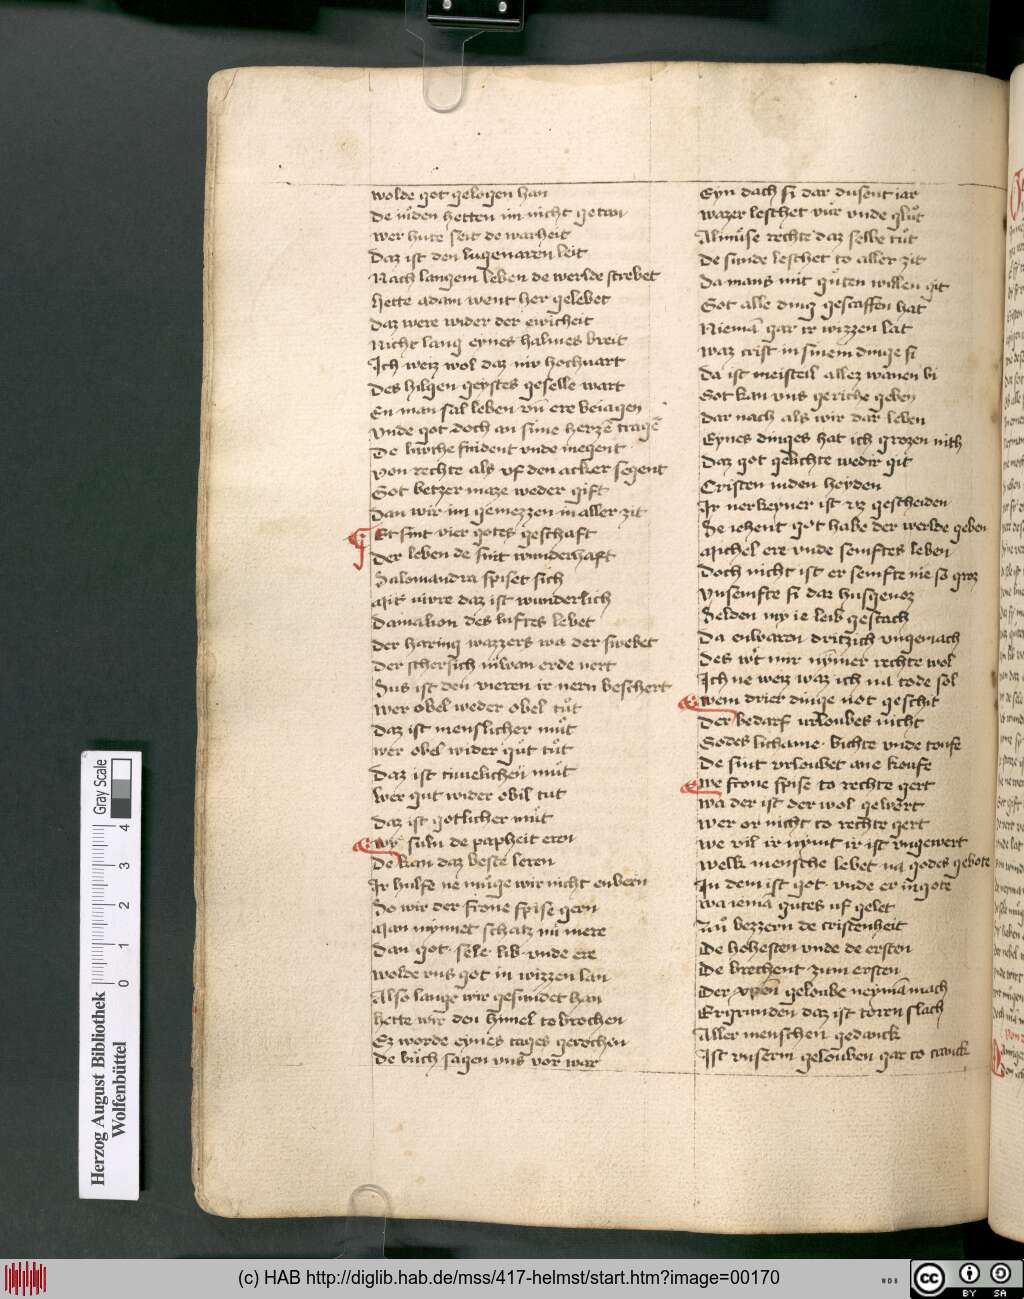 wolde got gelogen han
De iuͦden hetten im nicht getan
wer hute seit de warheit
Daz ist den lugenaren leit
Nach langem leben de werlde strebet
Hette adam went her gelebet
Daz were wider der ewicheit
Nicht lang eynes halmes breit
Ich weiz wol daz nir hochuart
Des hilgen geystes geselle wart
En man sal leben vnͤ ere beiagen
Vnde got doch an sime herzē tragē
De lutthe snident vnde megent
Von rechte als vf den acker segent
Got betzer maze weder gift
Dan wir im gemezzen in aller zit
Et sint vier gotes geschaft
Der leben de sint wunderhaft
Salomandra spiset sich
Mit vivre daz ist wunderlich
Damalion des luftes lebet
der haring wazzers wa der swebet
Der schersich niwan erde nert
Sus ist den vieren ir nern beschert
Wer obel weder obel tuͦt
Daz ist menslicher muͦt
wer obel wider guͦt tuͦt
Daz ist tiuuelichen muͦt
Wer gut wider obil tut
Daz ist gotlicher muͦt
Wyr suln de papheit eren
De kan daz beste leren
Ir hulfe ne muͦge wir nicht enbern
So wir der frone spise gern
Man mynnet schatz nu mere
Dan got sele lib vnde ere
Wolde vns got in wizzen lan
Also lange wir gesundet han
hette wir den himel tobrochen
Ez worde eynes tages gerochen
De buͦch sagen vns vor war
Eyn dach si dar dusent iar
Wazer leschet vur vnde gluͦt
Almuͦse rechte daz selbe tuͦt
De sunde leschet to aller zit
Da mans mit guͦten willen git
Got alle ding gescaffen hat
Niemā gar ir wizzen lat
Waz crist in sinem dinge si
Da ist meisteil allez wanen bi
Got kan vns geriche geben
Dar nach als wir dar leben
Eynes dinges hat ich grozen nith
Daz got gelichte wedir git
Cristen iuden heyden
Ir nerkeyner ist vz gescheiden
Se iehent got habe der werlde geben
Michel ere vnde semftes leben
Doch nicht ist er semfte nie so groz
Vnsemfte si dar husgenoz
Selden my ie leib geschach
Da enwaren dritzich vngemach
Des wͦt mir nȳmer rechte wol
Ich ne weiz waz ich na tode sol
Wem drier dinge not geschit
Der bedarf vrloubes nicht
Godes lichame bichte vnde toufe
De sint vrloubet ane koufe
We frone spise to rechte gert
Wa der ist der wol gewert
Wer or nicht to rechte gert
We vil ir nymt ir ist vngewert
Welk mensche lebet na godes gebote
In dem ist got vnde er in gote
Wa iemā gutes vf gelet
Zuͦ bezzern de cristenheit
De hohesten vnde de ersten
De brechent zum ersten
Der xpen geloube neymā mach
Ergrunden daz ist toren slach
Aller menschen gedanck
Ist vnserm gelouben gar to cranck
Herzog August Bibliothek
Wolfenbüttel
0 1 2 3 4
Gray Scale
(c) HAB http://diglib.hab.de/mss/417-helmst/start.htm?image=00170
WDB
cc BY SA